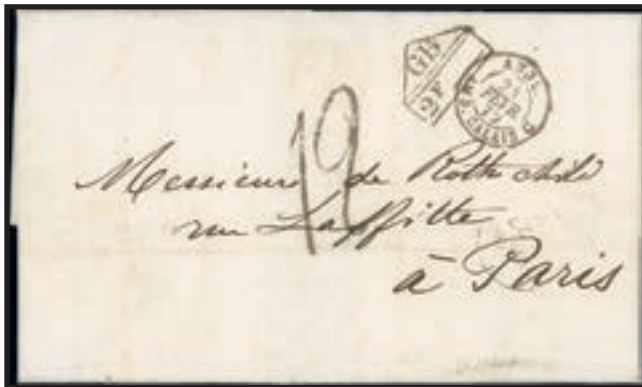 GB
2F
ANGL.
FEVR
CALAIS
12
Messieurs de Rothschild
rue Laffitte
à Paris